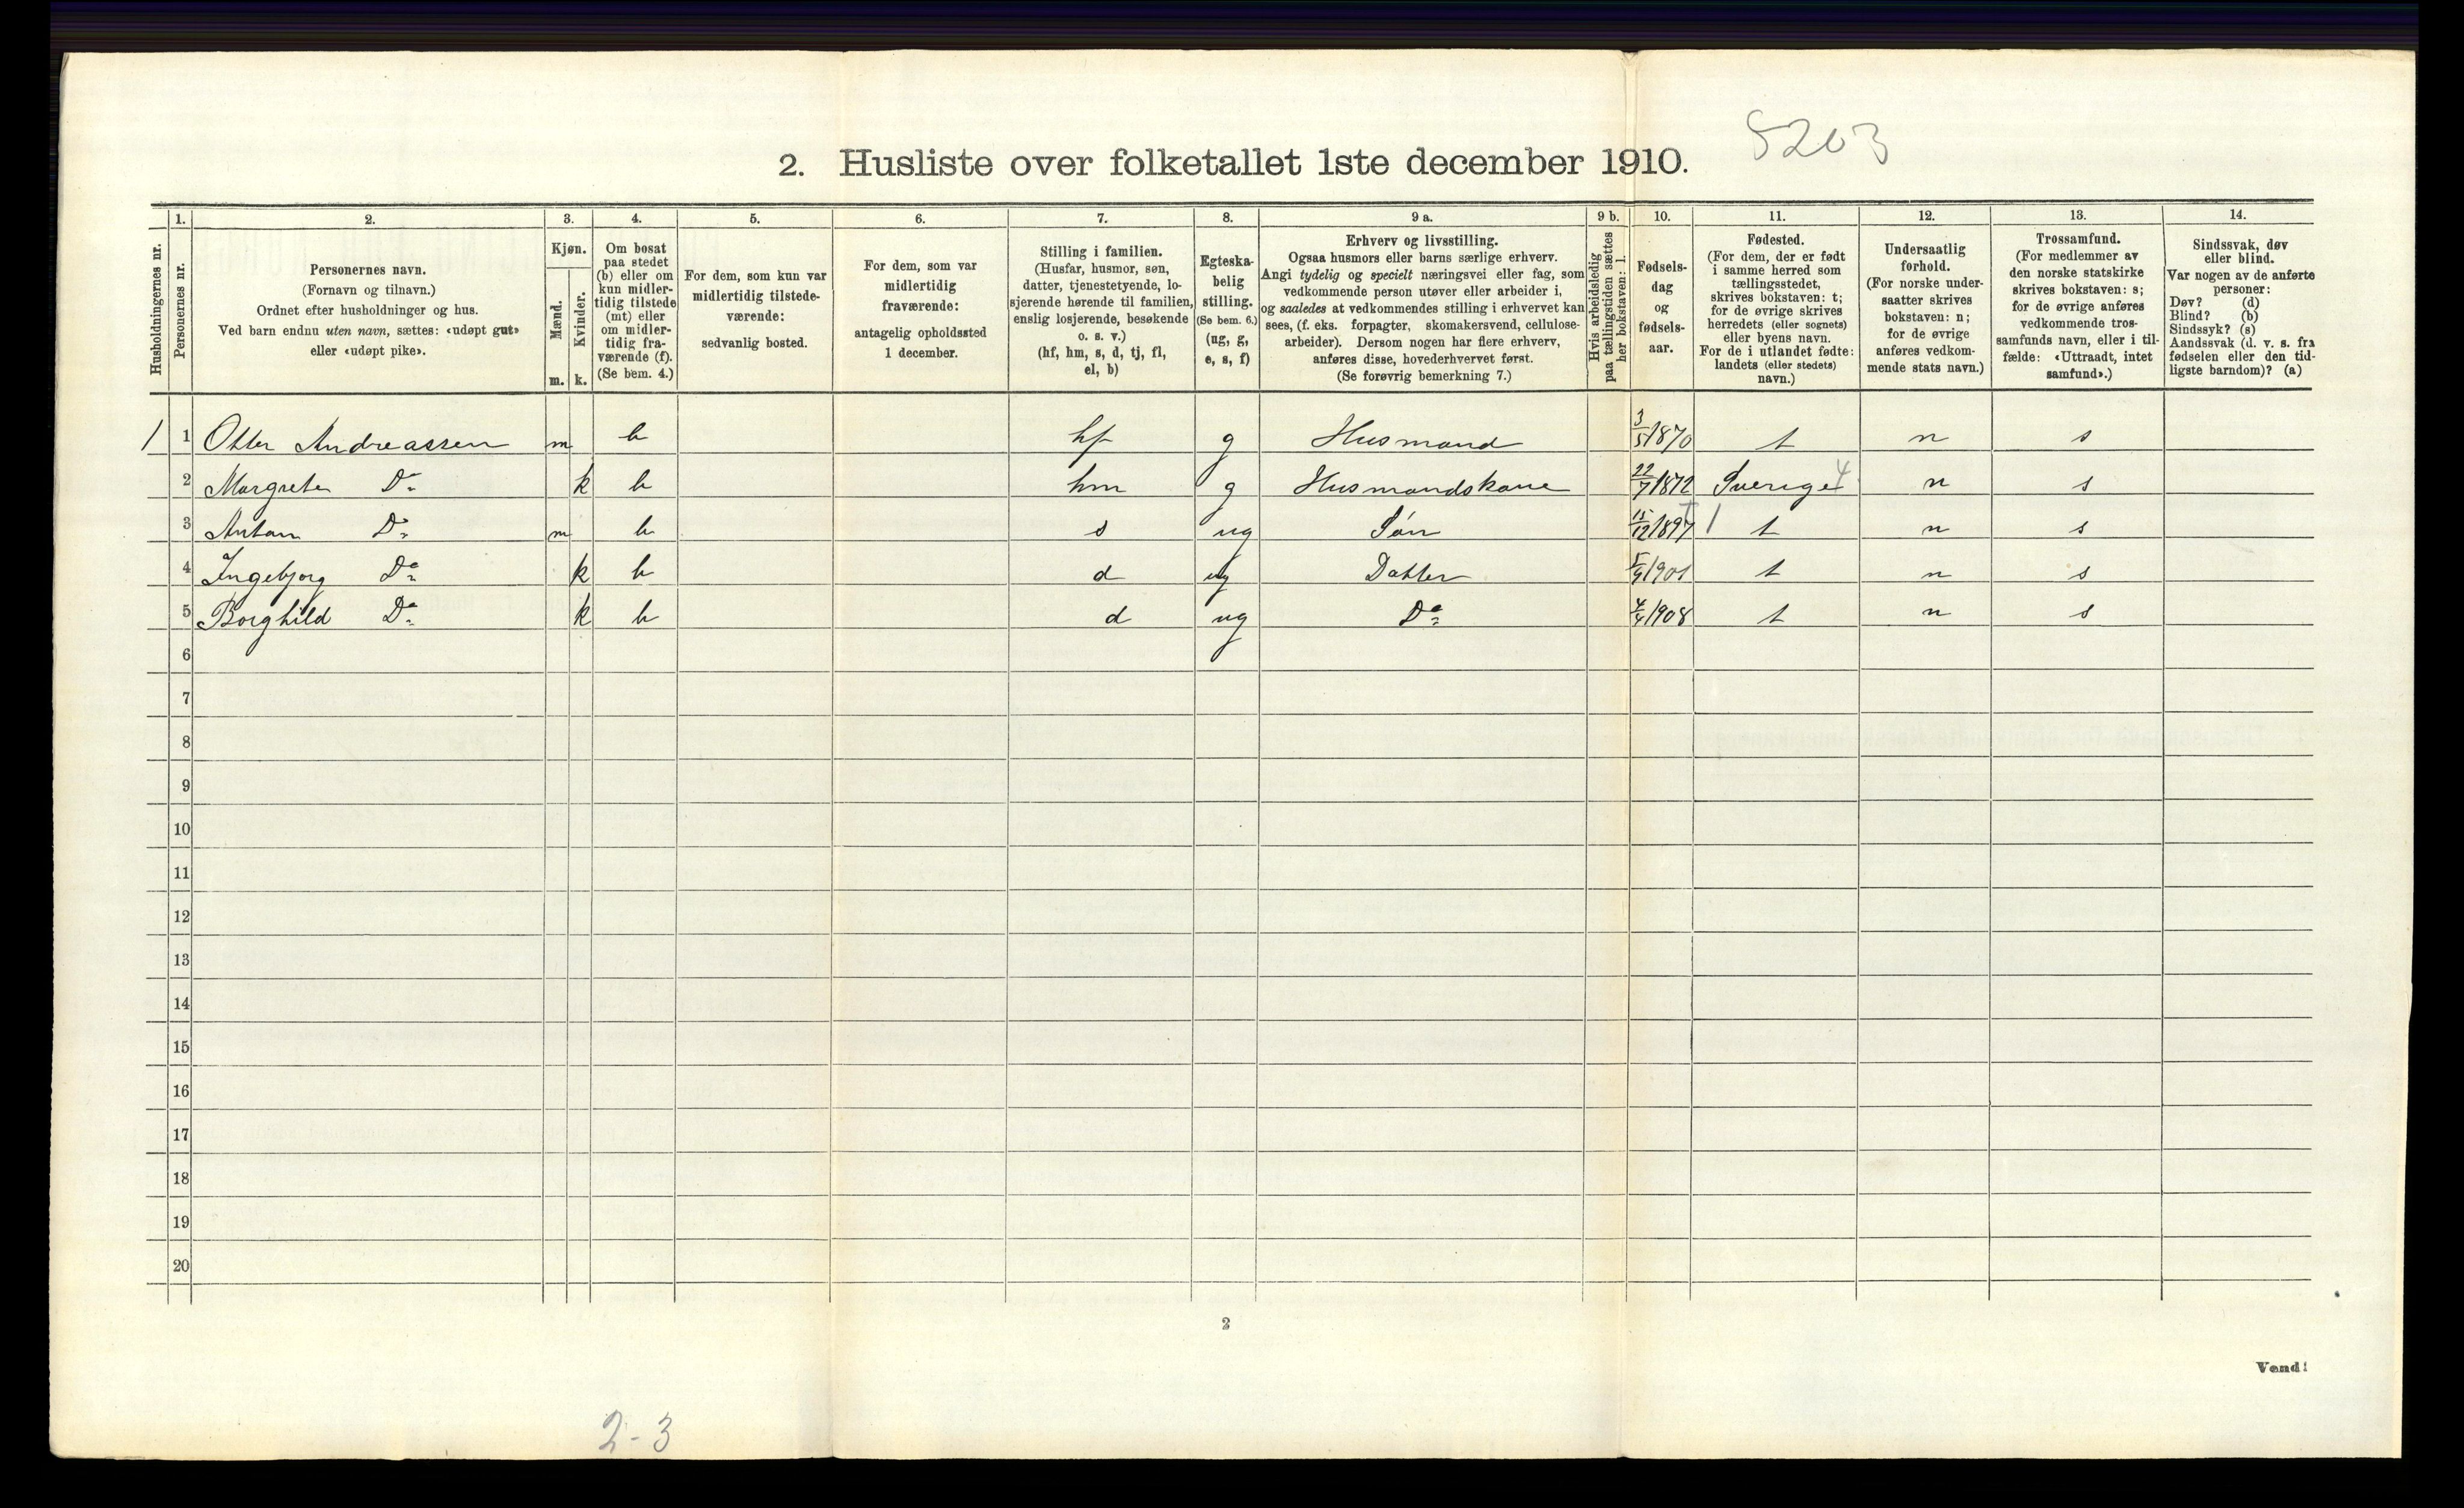 5203
2. Husliste over folketallet 1ste december 1910.
1. 2. 3. 4. 5. 6. 7. 8. 9 a. 9 b. 10. 11. 12. 13. 14.
Husholdningernes nr.
Personernes nr.
Personernes navn.
(Fornavn og tilnavn.)
Ordnet efter husholdninger og hus.
Ved barn endnu uten navn, sættes: «udøpt gut»
eller «udøpt pike».
Kjøn.
Mænd.
Kvinder.
m. k.
Om bosat
paa stedet
(b) eller om
kun midler-
tidig tilstede
(mt) eller
om midler-
tidig fra-
værende (f).
(Se bem. 4.)
For dem, som kun var
midlertidig tilstede-
værende:
sedvanlig bosted.
For dem, som var
midlertidig
fraværende:
antagelig opholdssted
1 december.
Stilling i familien.
(Husfar, husmor, søn,
datter, tjenestetyende, lo-
sjerende hørende til familien,
enslig losjerende, besøkende
o. s. v.)
(hf, hm, s, d, tj, fl,
el, b)
Egteska-
belig
stilling.
(Se bem. 6.)
(ug, g,
e, s, f)
Erhverv og livsstilling.
Ogsaa husmors eller barns særlige erhverv.
Angi tydelig og specielt næringsvei eller fag, som
vedkommende person utøver eller arbeider i,
og saaledes at vedkommendes stilling i erhvervet kan
sees, (f. eks. forpagter, skomakersvend, cellulose-
arbeider). Dersom nogen har flere erhverv,
anføres disse, hovederhvervet først.
(Se forøvrig bemerkning 7.)
Hvis arbeidsledig
paa tællingstiden sættes
her bokstaven: l.
Fødsels-
dag
og
fødsels-
aar.
Fødested.
(For dem, der er født
i samme herred som
tællingsstedet,
skrives bokstaven: t;
for de øvrige skrives
herredets (eller sognets)
eller byens navn.
For de i utlandet fødte:
landets (eller stedets)
navn.)
Undersaatlig
forhold.
(For norske under-
saatter skrives
bokstaven: n;
for de øvrige
anføres vedkom-
mende stats navn.)
Trossamfund.
(For medlemmer av
den norske statskirke
skrives bokstaven: s;
for de øvrige anføres
vedkommende tros-
samfunds navn, eller i til-
fælde: «Uttraadt, intet
samfund».)
Sindssvak, døv
eller blind.
Var nogen av de anførte
personer:
Døv? (d)
Blind? (b)
Sindssyk? (s)
Aandssvak (d. v. s. fra
fødselen eller den tid-
ligste barndom)? (a)
1 1 Otter Andreassen m b hf g Husmand 3/5 1870 t n s
2 Margrete Do k b hm g Husmandskone 22/7 1872 Sverige 4 n s
3 Anton Do m b s ug Søn 15/12 1897 t n s
4 Ingebjorg Do k b d ug Datter 1901 t n s
5 Borghild Do k b d ug Do 4/4 1908 t n s
6
7
8
9
10
11
12
13
14
15
16
17
18
19
20
2
Vend!
2-3